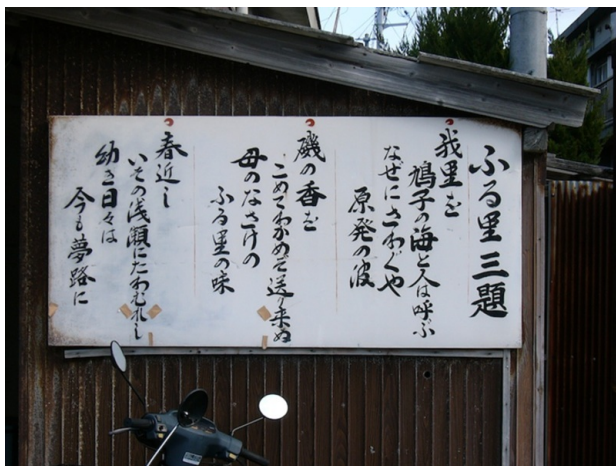 ふる里三題
我里を
鳩子の海と人は呼ぶ
なぜにさわぐや
原発の波
磯の香を
こめてわかめぞ送り来ぬ
母のなさけの
ふる里の味
春近し
いその浅瀬にたわむれし
幼き日々は
今も夢路に